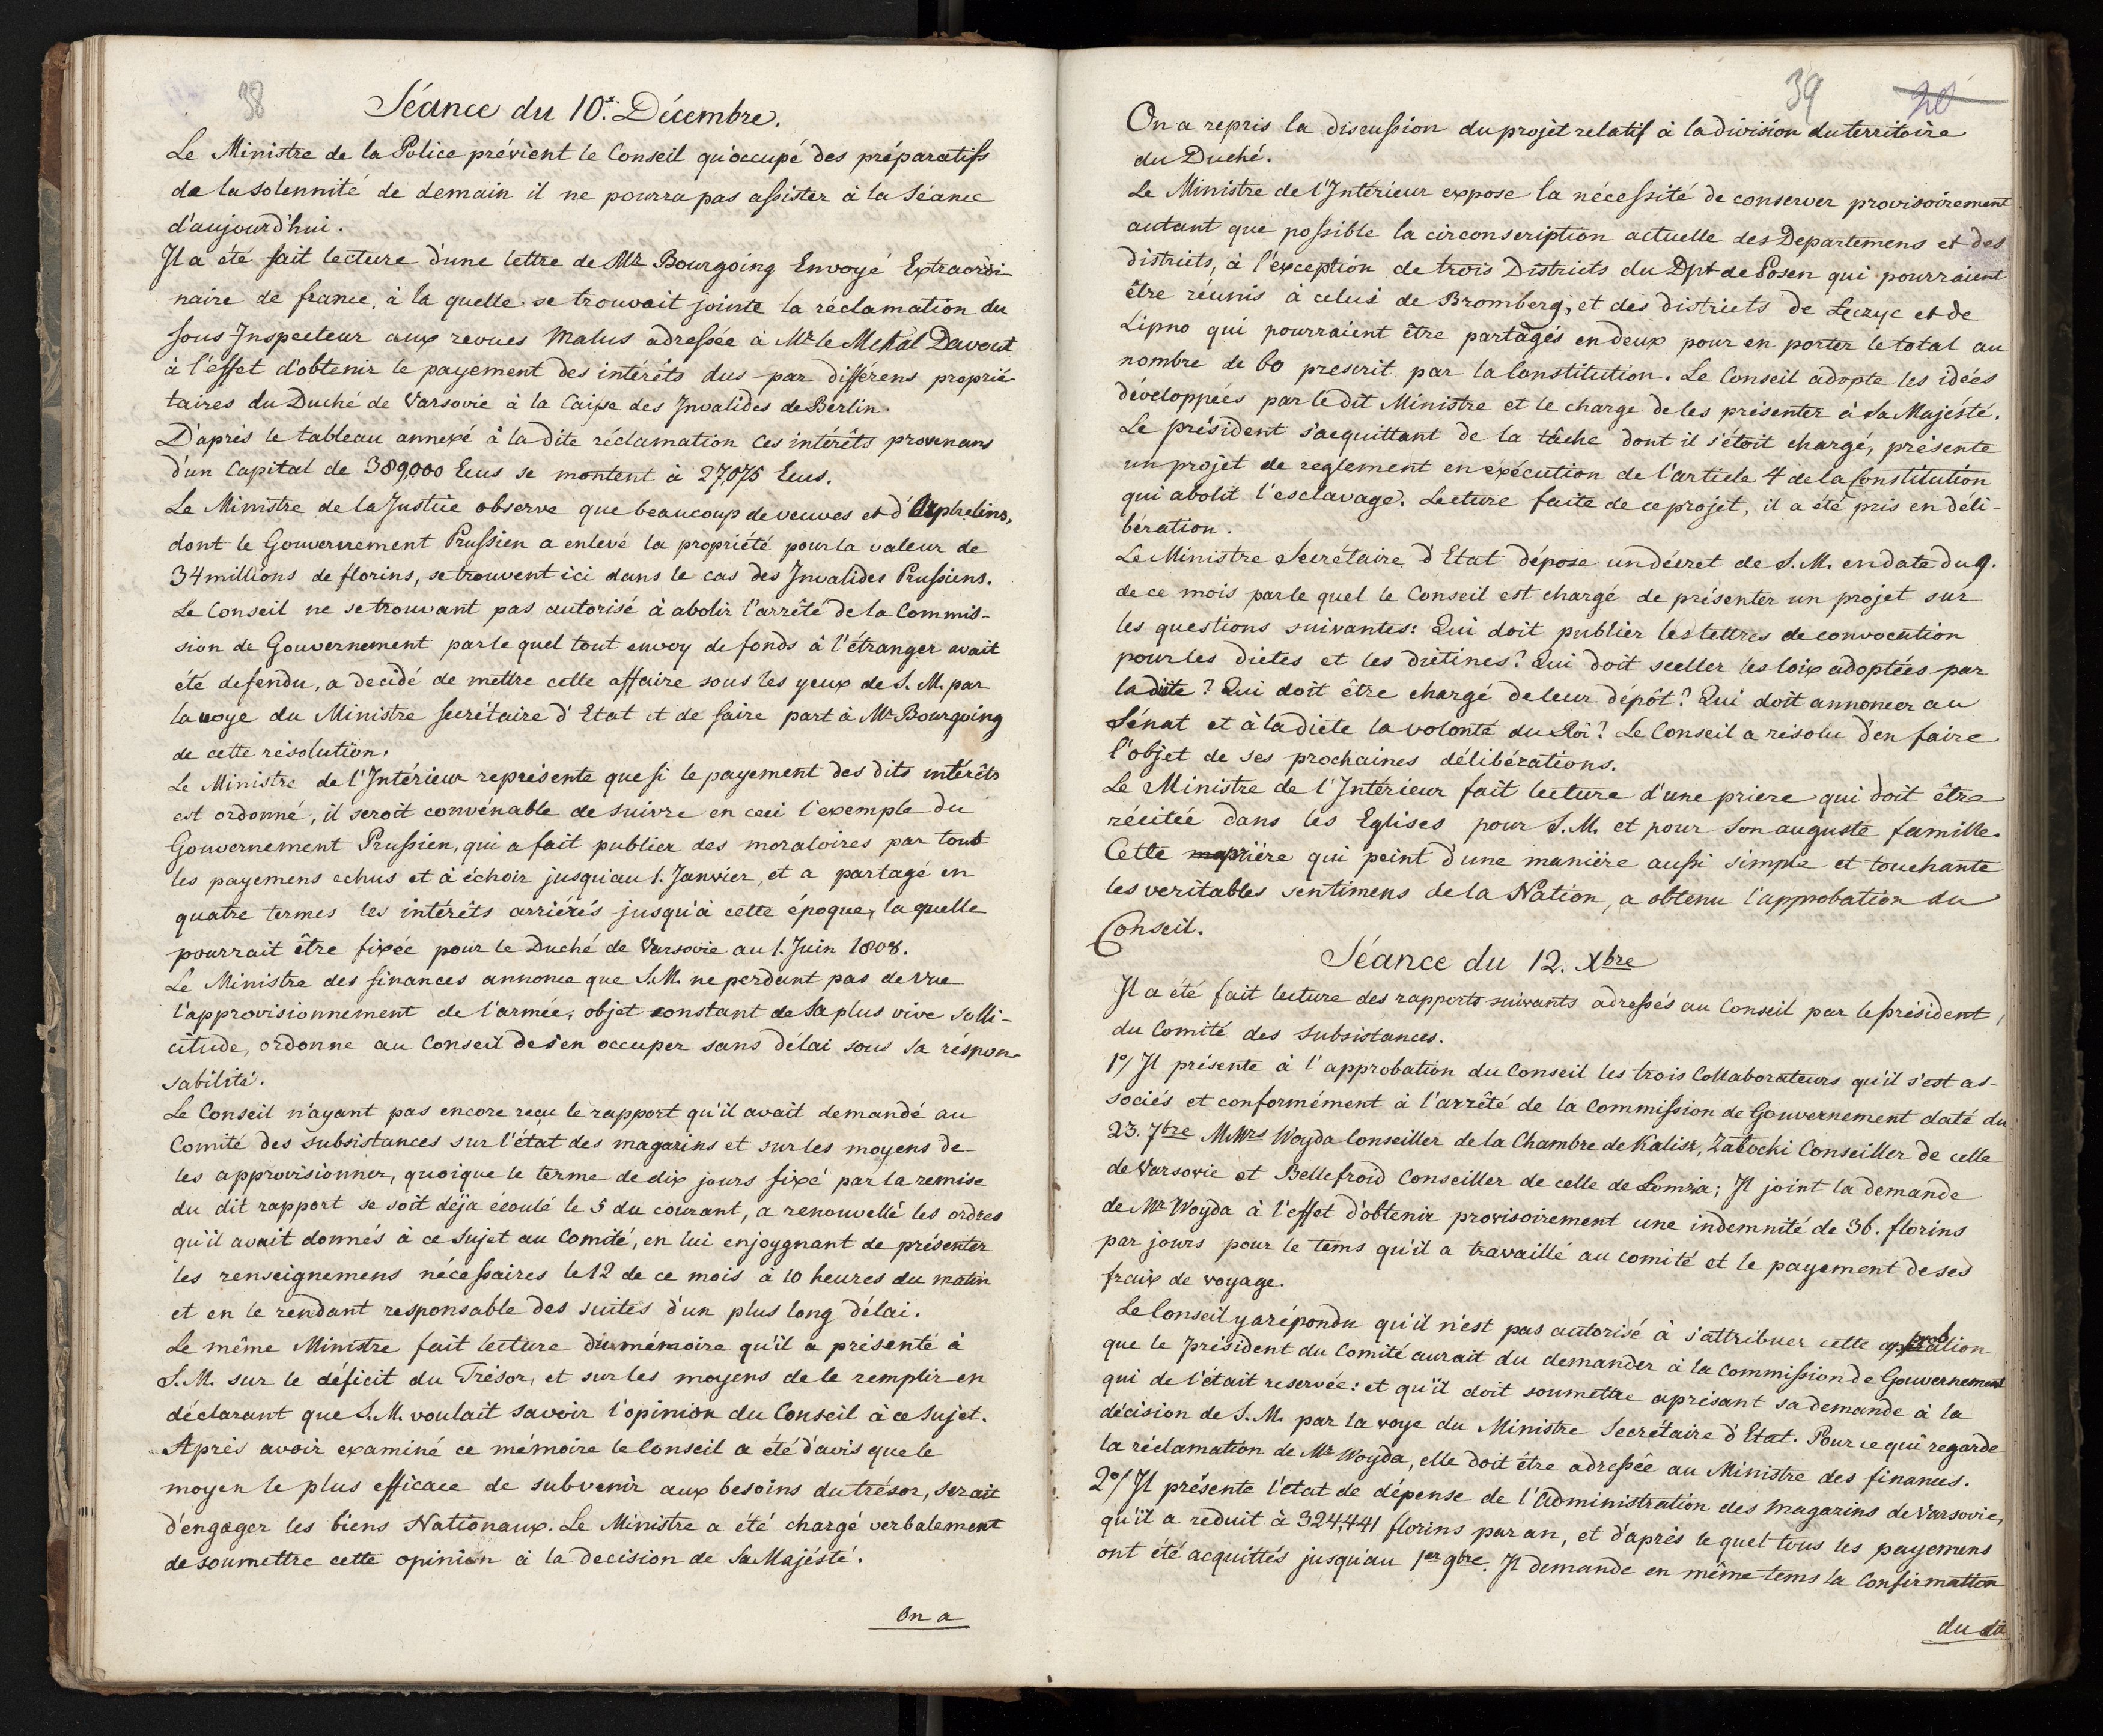 38
Séance du 10.x Décembre.
Le Ministre de la Police prévient le Conseil qu'occupé des préparatifs
de la solennité de demain il ne pourra pas assister à la Séance
d'aujourd'hui.
Il a été fait lecture d'une lettre de Mr Bourgoing Envoyé Extraordi-
naire de france, à la quelle se trouvait jointe la réclamation du
sous Inspecteur aux revues Malus adressée à Mr le Mchal Davout
à l'effet d'obtenir le payement des intérêts dus par différens proprié-
taires du Duché de Varsovie à la Caisse des Invalides de Berlin.
D'après le tableau annexé à la dite réclamation ces intérêts provenans
d'un Capital de 389,000 Ecus se montent à 27,075 Ecus.
Le Ministre de la Justice observe que beaucoup de veuves et d'Orphelins,
dont le Gouvernement Prussien a enlevé la propriété pour la valeur de
34 millions de florins, se trouvent ici dans le cas des Invalides Prussiens.
Le Conseil ne se trouvant pas autorisé à abolir l'arrêté de la Commis-
sion de Gouvernement par le quel tout envoy de fonds à l'étranger avait
été defendu, a decidé de mettre cette affaire sous les yeux de S. M. par
la voye du Ministre secrétaire d'Etat et de faire part à Mr Bourgoing
de cette résolution.
Le Ministre de l'Intérieur représente que si le payement des dits intérêts
est ordonné, il seroit convénable de suivre en ceci l'exemple du
Gouvernement Prussien, qui a fait publier des moratoires par tout
les payemens echus et à échoir jusqu'au 1. Janvier, et a partagé en
quatre termes les intérêts arriérés jusqu'à cette époque, la quelle
pourrait être fixée pour le Duché de Varsovie au 1. Juin 1808.
Le Ministre des finances annonce que S.M. ne perdant pas de vue
l'approvisionnement de l'armée, objet constant de Sa plus vive solli-
citude, ordonne au Conseil de s'en occuper sans délai sous sa respon-
sabilité.
Le Conseil n'ayant pas encore reçu le rapport qu'il avait demandé au
Comité des subsistances sur l'état des magazins et sur les moyens de
les approvisionner, quoique le terme de dix jours fixé par la remise
du dit rapport se soit déja écoulé le 5 du courant, a renouvellé les ordres
qu'il avait donnés à ce sujet au Comité, en lui enjoygnant de présenter
les renseignemens nécessaires le 12 de ce mois à 10 heures du matin
et en le rendant responsable des suites d'un plus long délai.
Le même Ministre fait lecture du mémoire qu'il a présenté à
S.M. sur le déficit du Trésor, et sur les moyens de le remplir en
déclarant que S.M. voulait savoir l'opinion du Conseil à ce sujet.
Après avoir examiné ce mémoire le Conseil a été d'avis que le
moyen le plus efficace de subvenir aux besoins du trésor, serait
d'engager les biens Nationaux. Le Ministre a été chargé verbalement
de soumettre cette opinion à la decision de Sa Majésté.
On a
39
20
On a repris la discussion du projèt relatif à la division du territoire
du Duché.
Le Ministre de l'Intérieur expose la nécessité de conserver provisoirement
autant que possible la circonscription actuelle des Departemens et des
districts, à l'exception de trois Districts du Dpt de Posen qui pourraient
être réunis à celui de Bromberg, et des districts de Łęczyc et de
Lipno qui pourraient être partagés en deux pour en porter le total au
nombre de 60 prescrit par la Constitution. Le Conseil adopte les idées
développées par le dit Ministre et le charge de les présenter à Sa Majésté.
Le président s'acquittant de la tâche dont il s'étoit chargé, présente
un projet de reglement en exécution de l'article 4 de la Constitution
qui abolit l'esclavage. Lecture faite de ce projet, il a été pris en déli-
bération.
Le Ministre Secrétaire d'Etat dépose un décret de S.M. en date du 9.
de ce mois par le quel le Conseil est chargé de présenter un projet sur
les questions suivantes: Qui doit publier les lettres de convocation
pour les diètes et les diètines? Qui doit sceller les loix adoptées par
la diète? Qui doit être chargé de leur dépôt? Qui doit annoncer au
Sénat et à la diète la volonté du Roi? Le Conseil a résolu d'en faire
l'objet de ses prochaines délibérations.
Le Ministre de l'Intérieur fait lecture d'une priere qui doit être
récitée dans les Eglises pour S.M. et pour son auguste famille.
Cette prière qui peint d'une manière aussi simple et touchante
les veritables sentimens de la Nation, a obtenu l'approbation du
Conseil.
Séance du 12. Xbre
Il a été fait lecture des rapports suivants adressés au Conseil par le président
du Comité des subsistances.
1o/ Il présente à l'approbation du Conseil les trois Collaborateurs qu'il s'est as-
sociés et conformément à l'arrêté de la Commission de Gouvernement daté du
23. 7bre M.Mrs Woyda Conseiller de la Chambre de Kalisz, Zabocki Conseiller de celle
de Varsovie et Bellefroid Conseiller de celle de Lomza; Il joint la demande
de Mr Woyda à l'effet d'obtenir provisoirement une indemnité de 36. florins
par jours pour le tems qu'il a travaillé au comité et le payement de ses
fraix de voyage.
Le Conseil y a répondu qu'il n'est pas autorisé à s'attribuer cette approbation
que le Président du Comité aurait du demander à la Commission de Gouvernement
qui de l'était reservée: et qu'il doit soumettre aprésant sa demande à la
décision de S.M. par la voye du Ministre Secrétaire d'Etat. Pour ce qui regarde
la réclamation de Mr Woyda, elle doit être adressée au Ministre des finances.
2o/ Il présente l'état de dépense de l'Administration des magazins de Varsovie,
qu'il a reduit à 324,441 florins par an, et d'après le quel tous les payemens
ont été acquittés jusqu'au 1er 9bre. Il demande en même tems la Confirmation
du dit